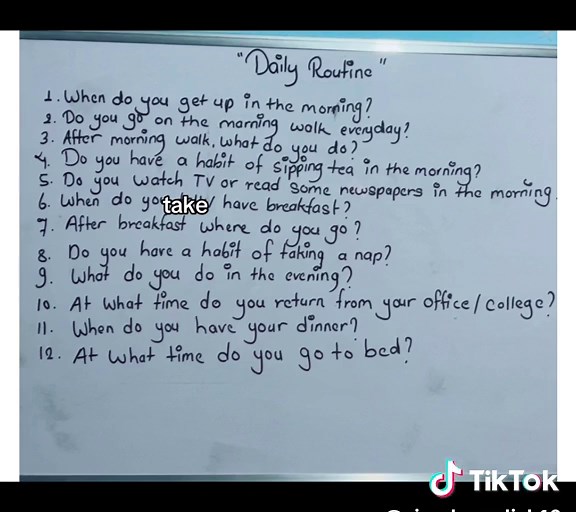 "Daily Routine"
1. When do you get up in the morning?
2. Do you go on the marning walk everyday?
3. After morning walk, what do you do?
4. Do you have a habit of sipping tea in the morning?
5. Do you watch TV or read some newspapers in the morning
6. When do you take / have breakfast?
7. After breakfast where do you go?
8. Do you have a habit of taking a nap?
9. What do you do in the evening?
10. At what time do you return from your office / college?
11. When do you have your dinner?
12. At what time do you go to bed?
TikTok